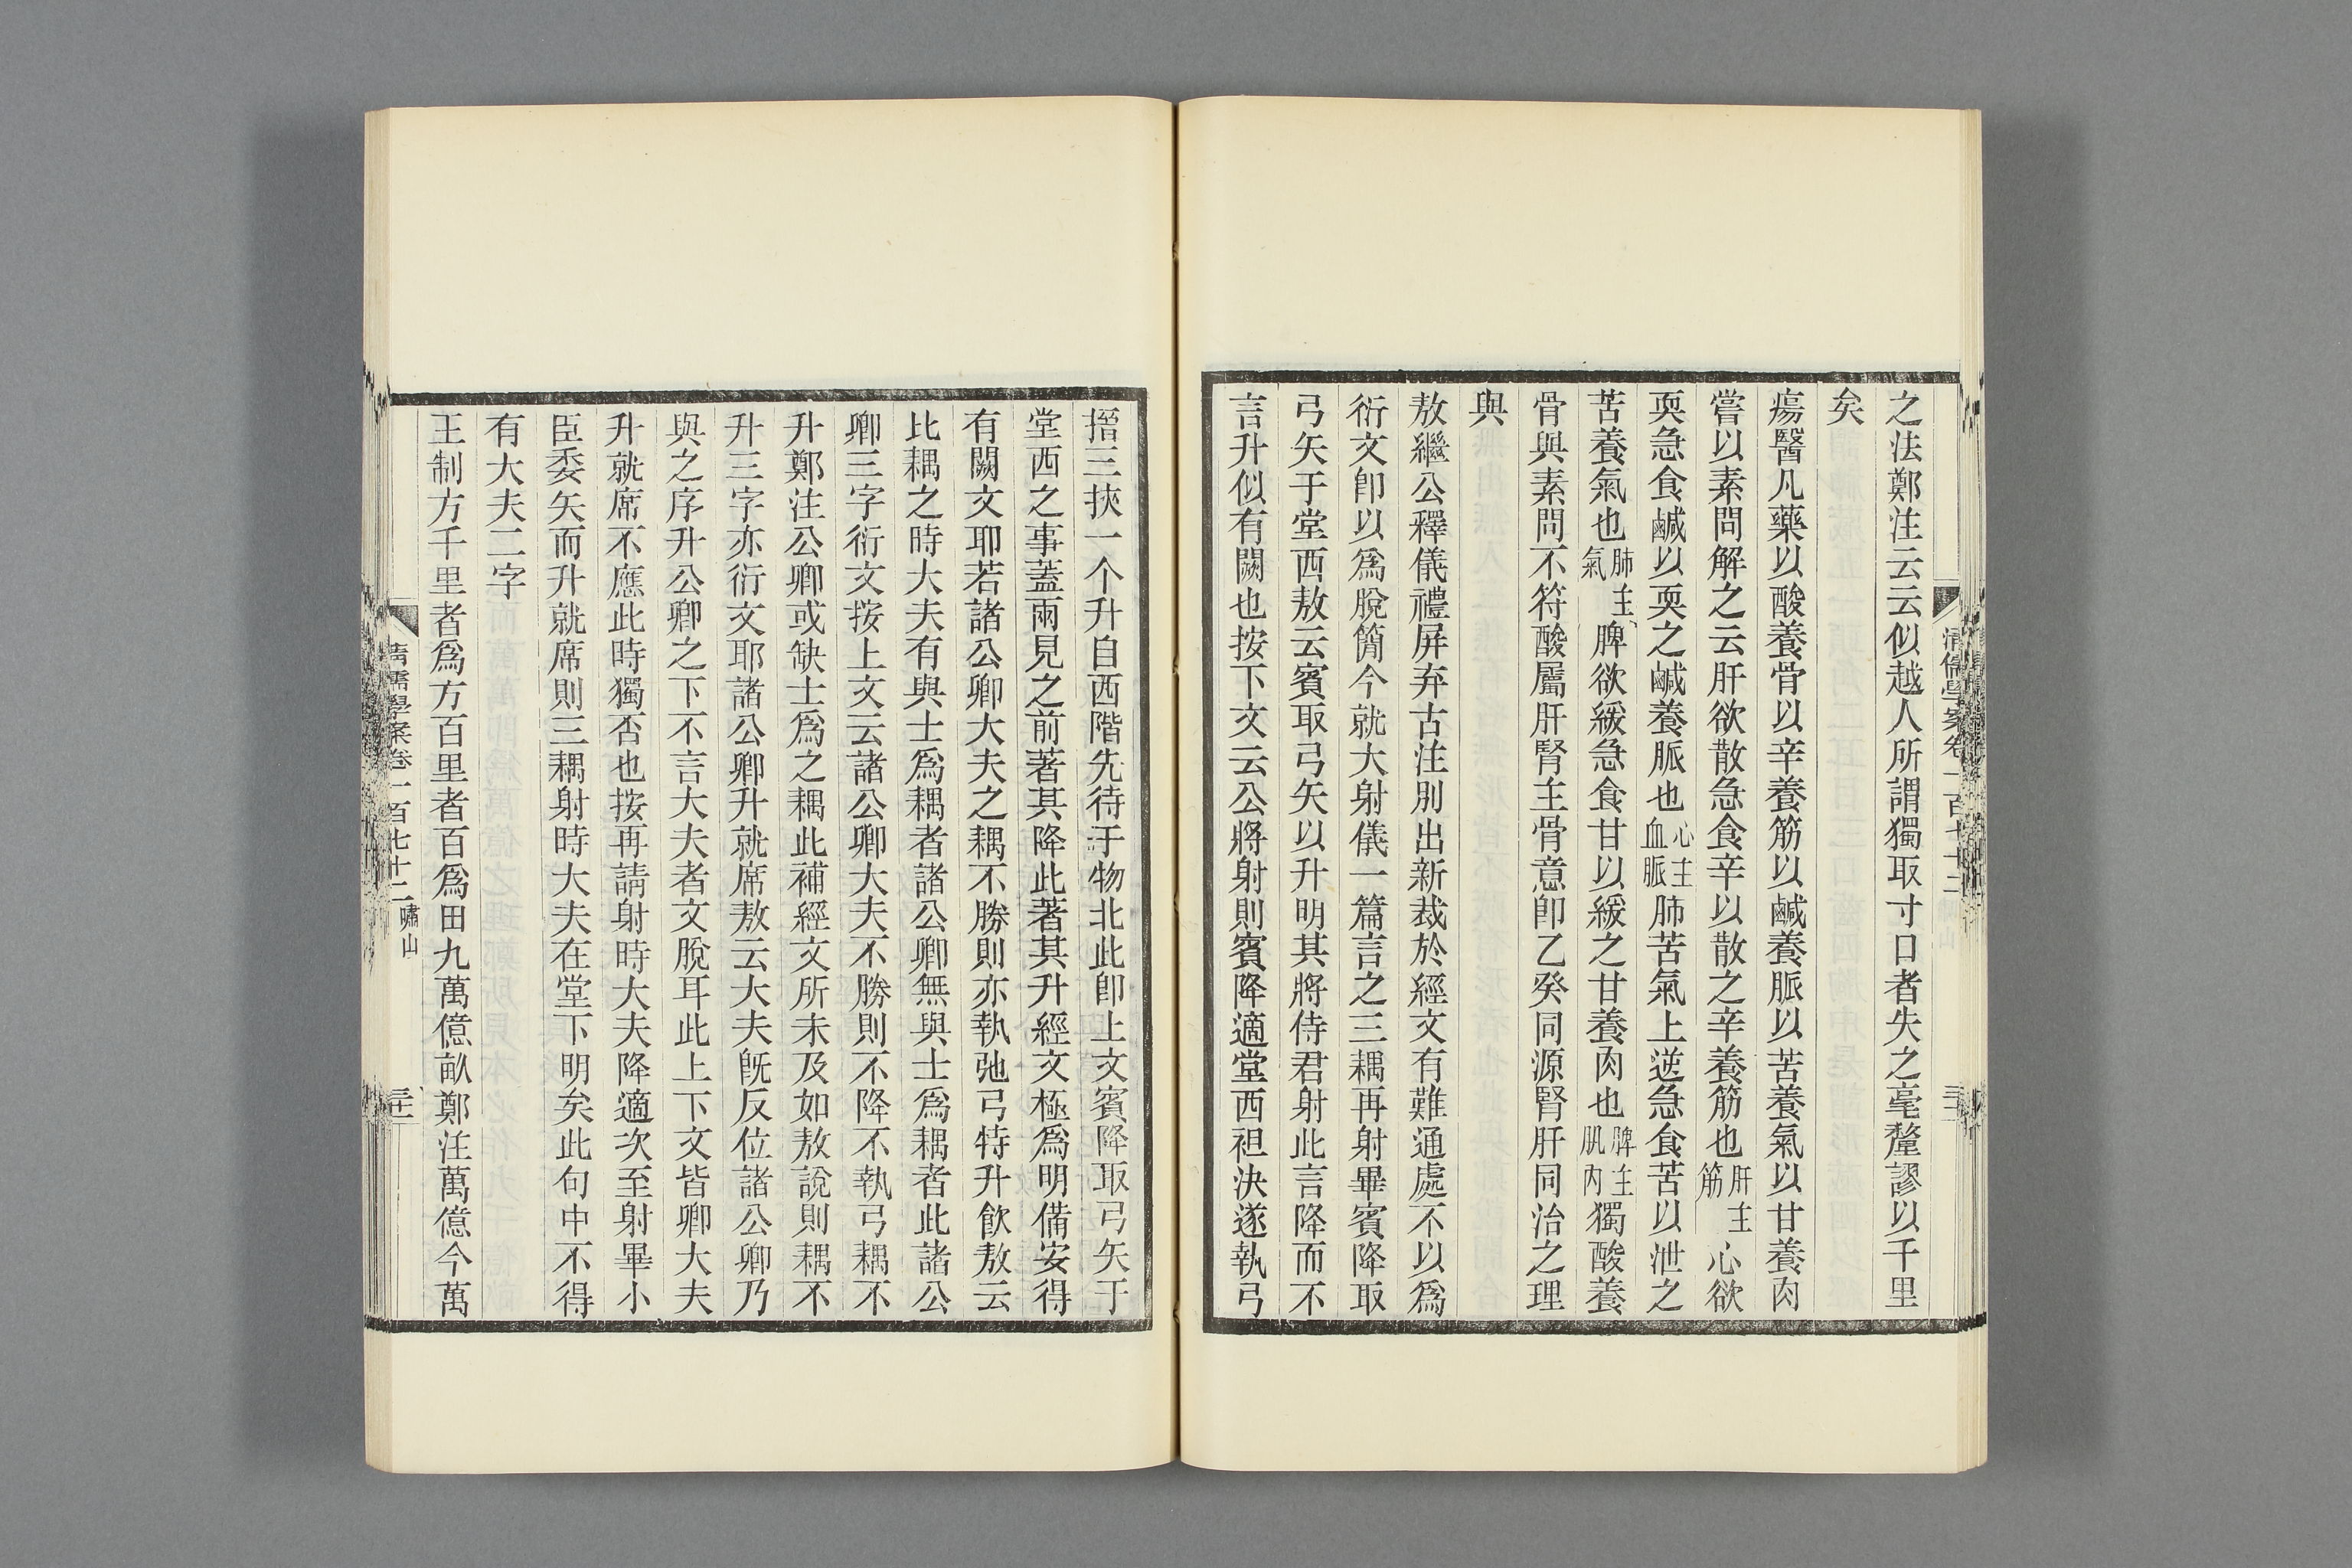 之法鄭注云云似越人所謂獨取寸口者失之毫釐謬以千里
矣
瘍醫凡藥以酸養骨以辛養筋以鹹養脈以苦養氣以甘養肉
嘗以素問解之云肝欲散急食辛以散之辛養筋也肝主筋心欲
耎急食鹹以耎之鹹養脈也心主血脈肺苦氣上逆急食苦以泄之
苦養氣也肺主氣脾欲緩急食甘以緩之甘養肉也脾主肌肉獨酸養
骨與素問不符酸屬肝腎主骨意卽乙癸同源腎肝同治之理
與
敖繼公釋儀禮屏弃古注別出新裁於經文有難通處不以爲
衍文卽以爲脫簡今就大射儀一篇言之三耦再射畢賓降取
弓矢于堂西敖云賓取弓矢以升明其將侍君射此言降而不
言升似有闕也按下文云公將射則賓降適堂西袒決遂執弓
搢三挾一个升自西階先待于物北此卽上文賓降取弓矢于
堂西之事蓋兩見之前著其降此著其升經文極爲明備安得
有闕文耶若諸公卿大夫之耦不勝則亦執弛弓特升飮敖云
比耦之時大夫有與士爲耦者諸公卿無與士爲耦者此諸公
卿三字衍文按上文云諸公卿大夫不勝則不降不執弓耦不
升鄭注公卿或缺士爲之耦此補經文所未及如敖說則耦不
升三字亦衍文耶諸公卿升就席敖云大夫旣反位諸公卿乃
與之序升公卿之下不言大夫者文脫耳此上下文皆卿大夫
升就席不應此時獨否也按再請射時大夫降適次至射畢小
臣委矢而升就席則三耦射時大夫在堂下明矣此句中不得
有大夫二字
王制方千里者爲方百里者百爲田九萬億畝鄭注萬億今萬
清儒學案卷一百七十二 嘯山